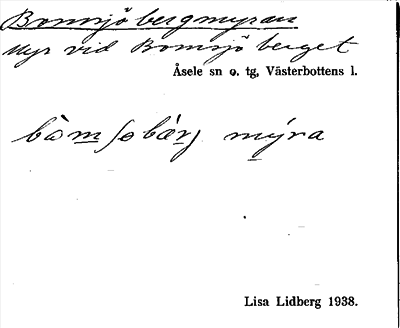 Bomsjöbergmyran
Myr vid Bomsjöberget
Åsele sn o. tg, Västerbottens l.
bòm ʃøbárj mýra
Lisa Lidberg 1938.